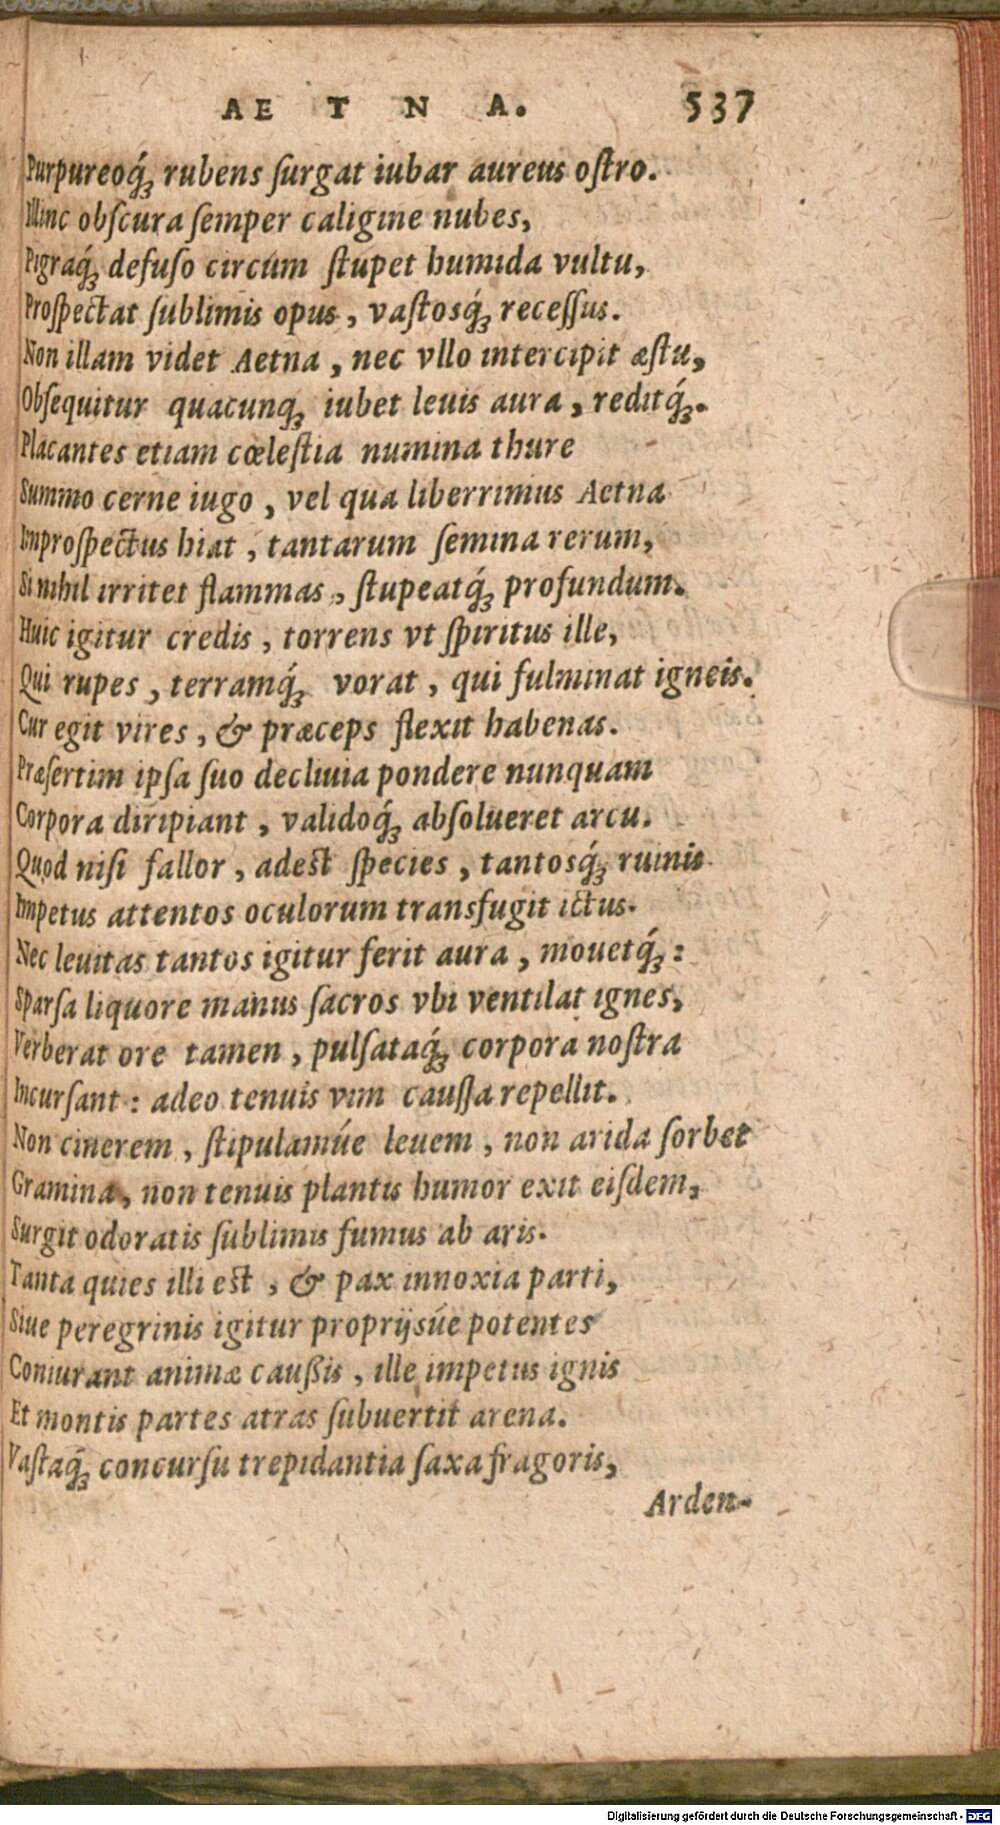 AETNA. 537
Purpureoq́; rubens ſurgat iubar aureus oſtro.
Illinc obſcura ſemper caligine nubes,
Pigraq́; defuſo circùm ſtupet humida vultu,
Proſpectat ſublimis opus, vaſtosq́; receſſus.
Non illam videt Aetna, nec vllo intercipit æſtu,
Obſequitur quacunq; iubet leuis aura, reditq́;.
Placantes etiam cœleſtia numina thure
Summo cerne iugo, vel qua liberrimus Aetna
Improſpectus hiat, tantarum ſemina rerum,
Si nihil irritet flammas, ſtupeatq́; profundum.
Huic igitur credis, torrens vt ſpiritus ille,
Qui rupes, terramq́; vorat, qui fulminat igneis.
Cur egit vires, & præceps flexit habenas.
Præſertim ipſa ſuo decliuia pondere nunquam
Corpora diripiant, validoq́; abſolueret arcu.
Quod niſi fallor, adest ſpecies, tantosq́; ruinis
Impetus attentos oculorum transfugit ictus.
Nec leuitas tantos igitur ferit aura, mouetq́;:
Sparſa liquore manus ſacros vbi ventilat ignes,
Verberat ore tamen, pulſataq́; corpora noſtra
Incurſant: adeo tenuis vim cauſſa repellit.
Non cinerem, ſtipulamúe leuem, non arida ſorbet
Gramina, non tenuis plantis humor exit eiſdem,
Surgit odoratis ſublimis fumus ab aris.
Tanta quies illi est, & pax innoxia parti,
Siue peregrinis igitur proprijsúe potentes
Coniurant animæ cauſsis, ille impetus ignis
Et montis partes atras ſubuertit arena.
Vaſtaq́; concurſu trepidantia ſaxa fragoris,
Arden-
Digitalisierung gefördert durch die Deutsche Forschungsgemeinschaft - DFG